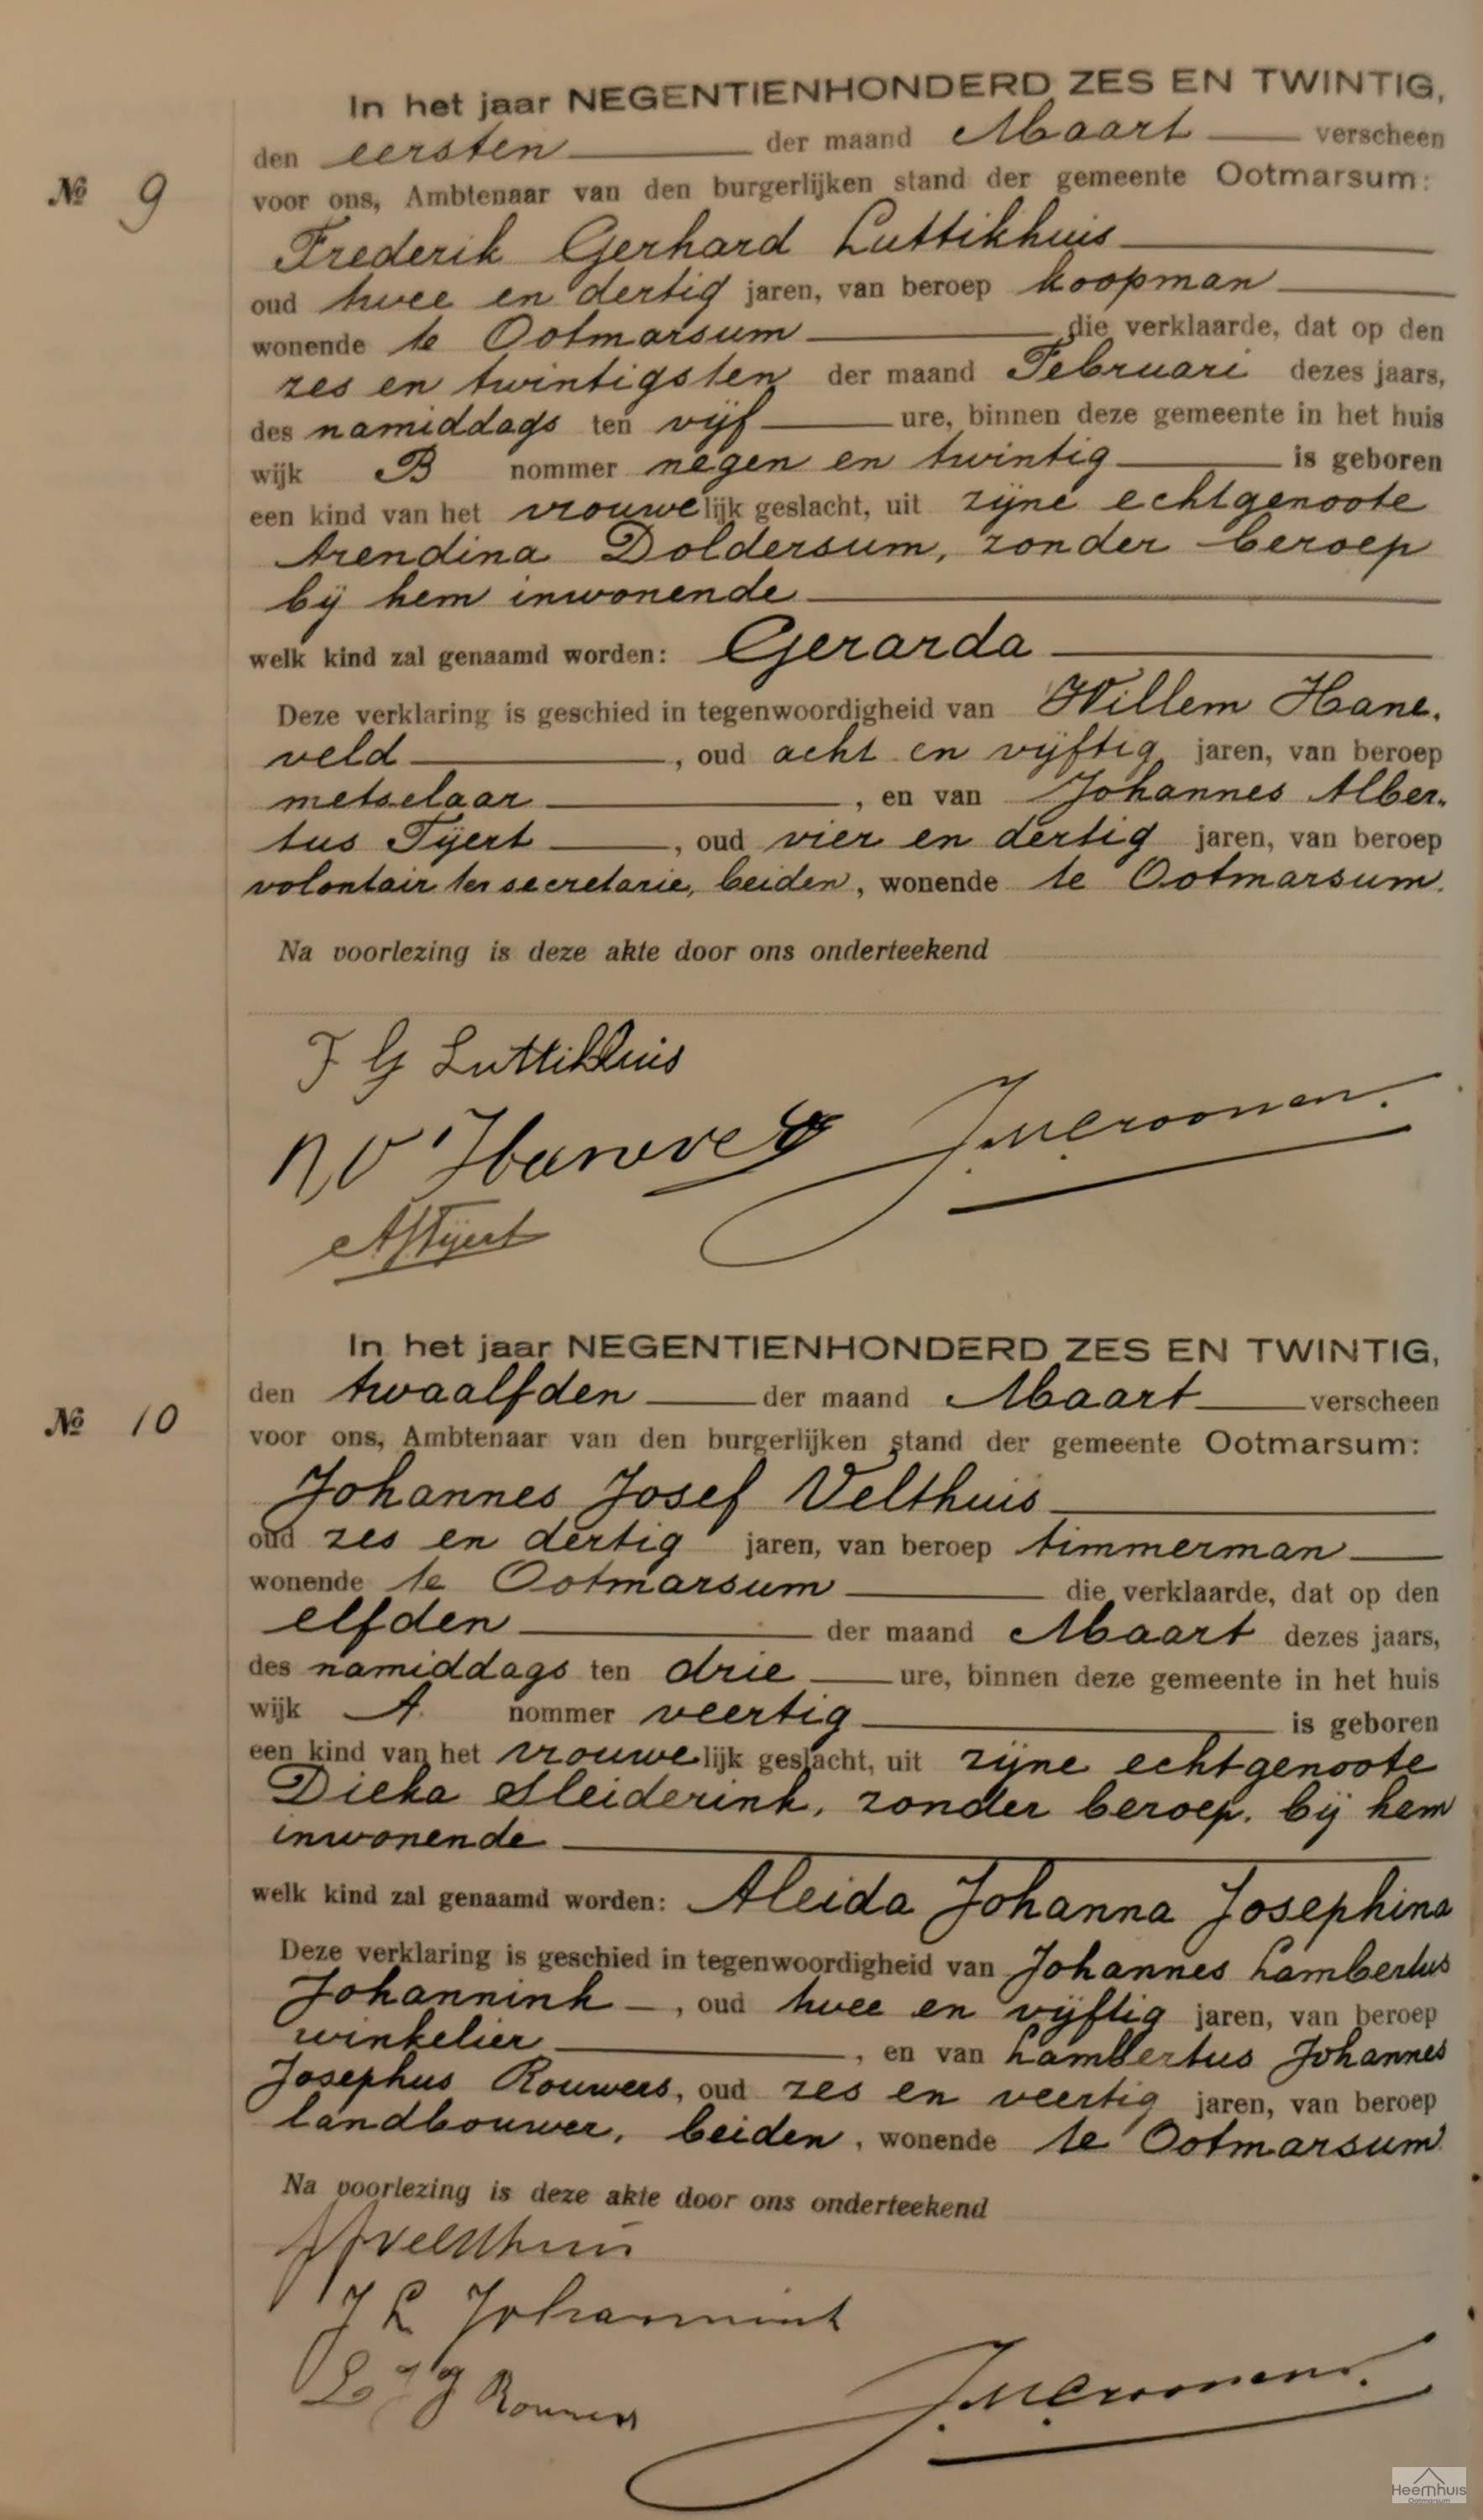 In het jaar NEGENTIENHONDERD ZES EN TWINTIG,
den eersten der maand Maart verscheen
№ 9
voor ons, Ambtenaar van den burgerlijken stand der gemeente Ootmarsum:
Frederik Gerhard Luttikhuis
oud twee en dertig jaren, van beroep koopman
wonende te Ootmarsum die verklaarde, dat op den
zes en twintigsten der maand Februari dezes jaars,
des namiddags ten vijf ure, binnen deze gemeente in het huis
wijk B nommer negen en twintig is geboren
een kind van het vrouwelijk geslacht, uit zijne echtgenoote
Arendina Doldersum, zonder beroep
bij hem inwonende
welk kind zal genaamd worden: Gerarda
Deze verklaring is geschied in tegenwoordigheid van Willem Hane.
veld, oud acht en vijftig jaren, van beroep
metselaar, en van Johannes Alber.
tus Tijert, oud vier en dertig jaren, van beroep
volontair ter secretarie, beiden, wonende te Ootmarsum.
Na voorlezing is deze akte door ons onderteekend
F G Luttikhuis
In het jaar NEGENTIENHONDERD ZES EN TWINTIG,
den twaalfden der maand Maart verscheen
№ 10
voor ons, Ambtenaar van den burgerlijken stand der gemeente Ootmarsum:
Johannes Josef Velthuis
oud zes en dertig jaren, van beroep timmerman
wonende te Ootmarsum die verklaarde, dat op den
elfden der maand Maart dezes jaars,
des namiddags ten drie ure, binnen deze gemeente in het huis
wijk A. nommer veertig is geboren
een kind van het vrouwelijk geslacht, uit zijne echtgenoote
Dieka Sleiderink, zonder beroep. bij hem
inwonende
welk kind zal genaamd worden: Aleida Johanna Josephina
Deze verklaring is geschied in tegenwoordigheid van Johannes Lambertus
Johannink, oud twee en vijftig jaren, van beroep
winkelier, en van Lambertus Johannes
Josephus Rouwers, oud zes en veertig jaren, van beroep
landbouwer, beiden, wonende te Ootmarsum.
Na voorlezing is deze akte door ons onderteekend
J L Johannink
L J J Rouwers
Heemhuis
Ootmarsum